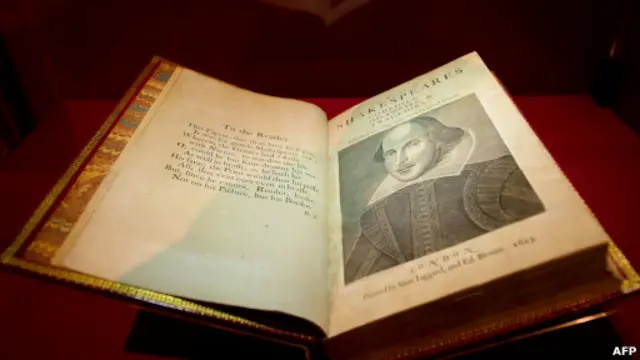 To the Reader.
This Figure, that thou here seest put,
It was for gentle Shakespeare cut;
Wherein the Graver had a strife
with Nature, to out-doo the life:
O, could he but have drawne his wit
As well in brasse, as he hath hit
His face; the Print would then surpasse
All, that was ever writ in brasse.
But, since he cannot, Reader, looke
Not on his Picture, but his Booke.
B. I.
SHAKESPEARES
COMEDIES,
HISTORIES, &
TRAGEDIES.
LONDON
Printed by Isaac Iaggard, and Ed. Blount. 1623.
AFP